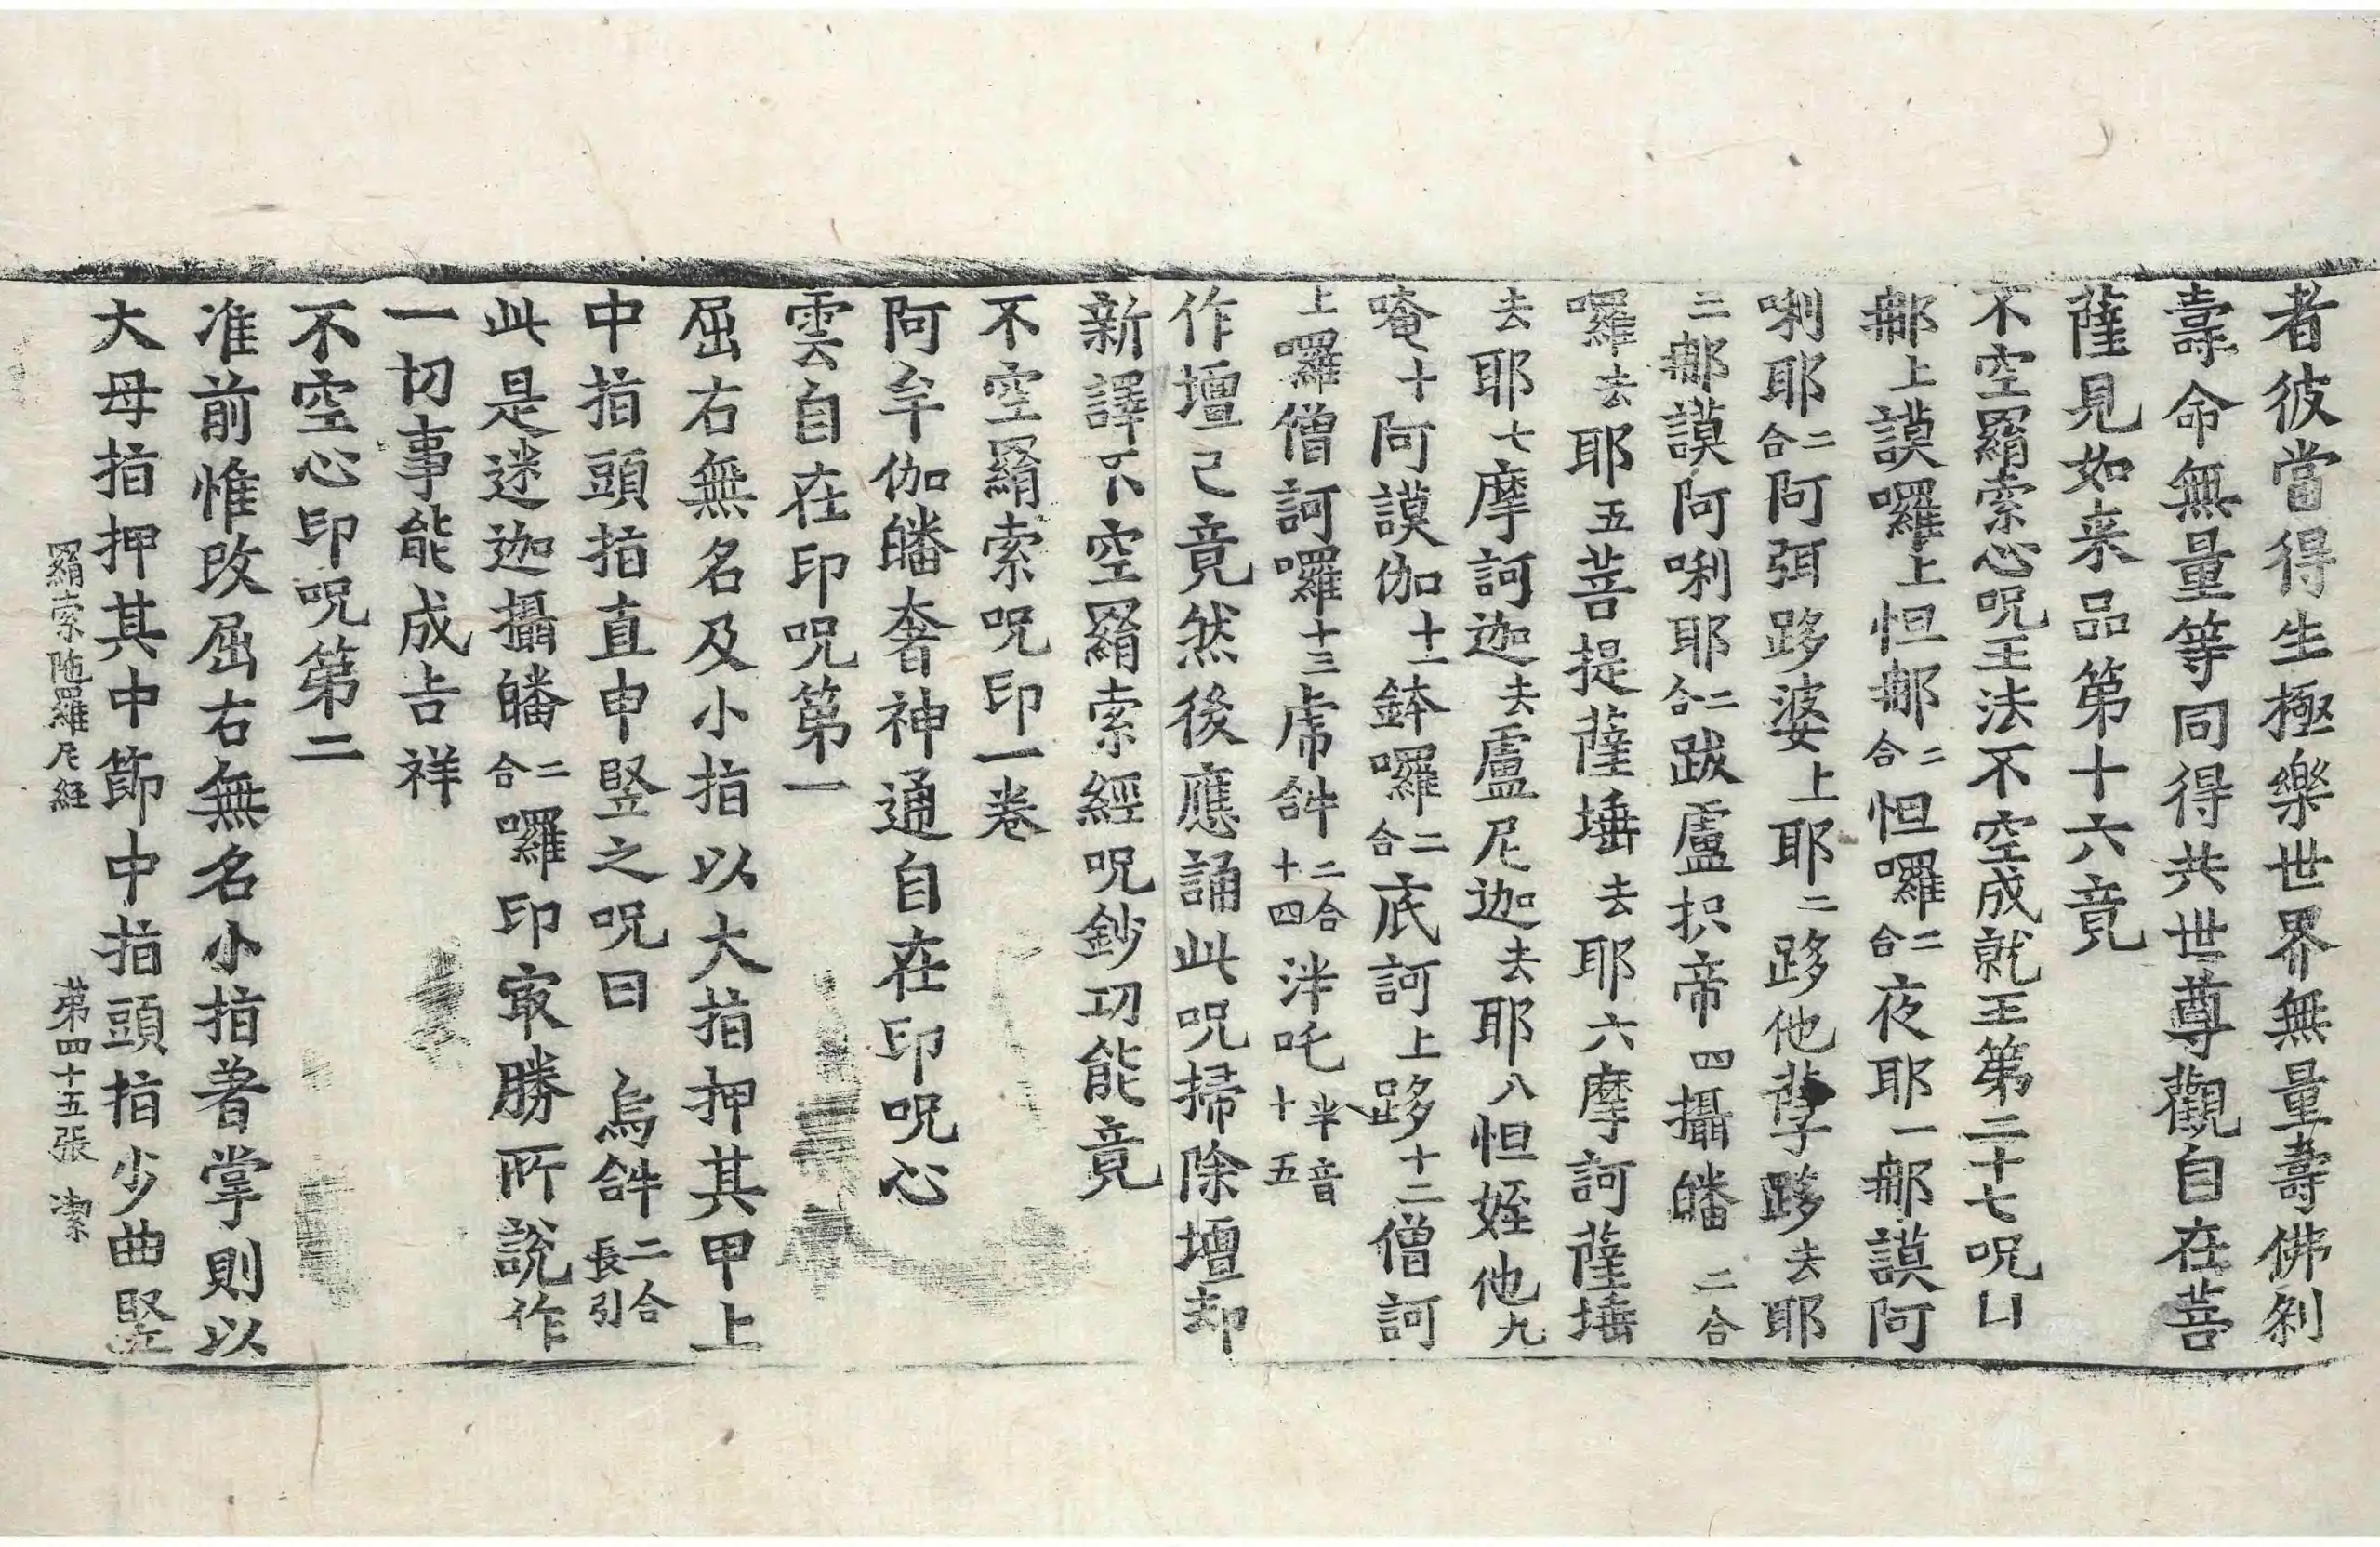 者彼當得生極樂世界無量壽佛刹
壽命無量等同得共世尊觀自在菩
薩見如来品第十六竟
不空羂索心呪王法不空成就王第二十七呪凵
郍上謨囉上怛郍二合怛囉二合夜耶一郍謨阿
唎耶二合阿弭跢婆上耶二跢他孽跢去耶
三郍謨阿唎耶二合跋盧抧帝四攝皤二合
囉去耶五菩提薩埵去耶六摩訶薩埵
去耶七摩訶迦去盧尼迦去耶八怛姪他九
唵十阿謨伽十一鉢囉二合底訶上跢十二僧訶
上囉僧訶囉十三虎𤙖二合十四泮吒半音十五
作壇已竟然後應誦此呪掃除壇却
新譯不空羂索經呪鈔功能竟
不空羂索呪印一卷
阿牟伽皤奢神通自在印呪心
雲自在印呪第一
屈右無名及小指以大指押其甲上
中指頭指直申竪之呪曰　烏𤙖二合長引
此是迷迦攝皤二合囉印㝡勝所説作
一切事能成吉祥
不空心印呪第二
准前惟改屈右無名小指著掌則以
大母指押其中節中指頭指少曲竪
羂索陁羅尼經　第四十五張　潔